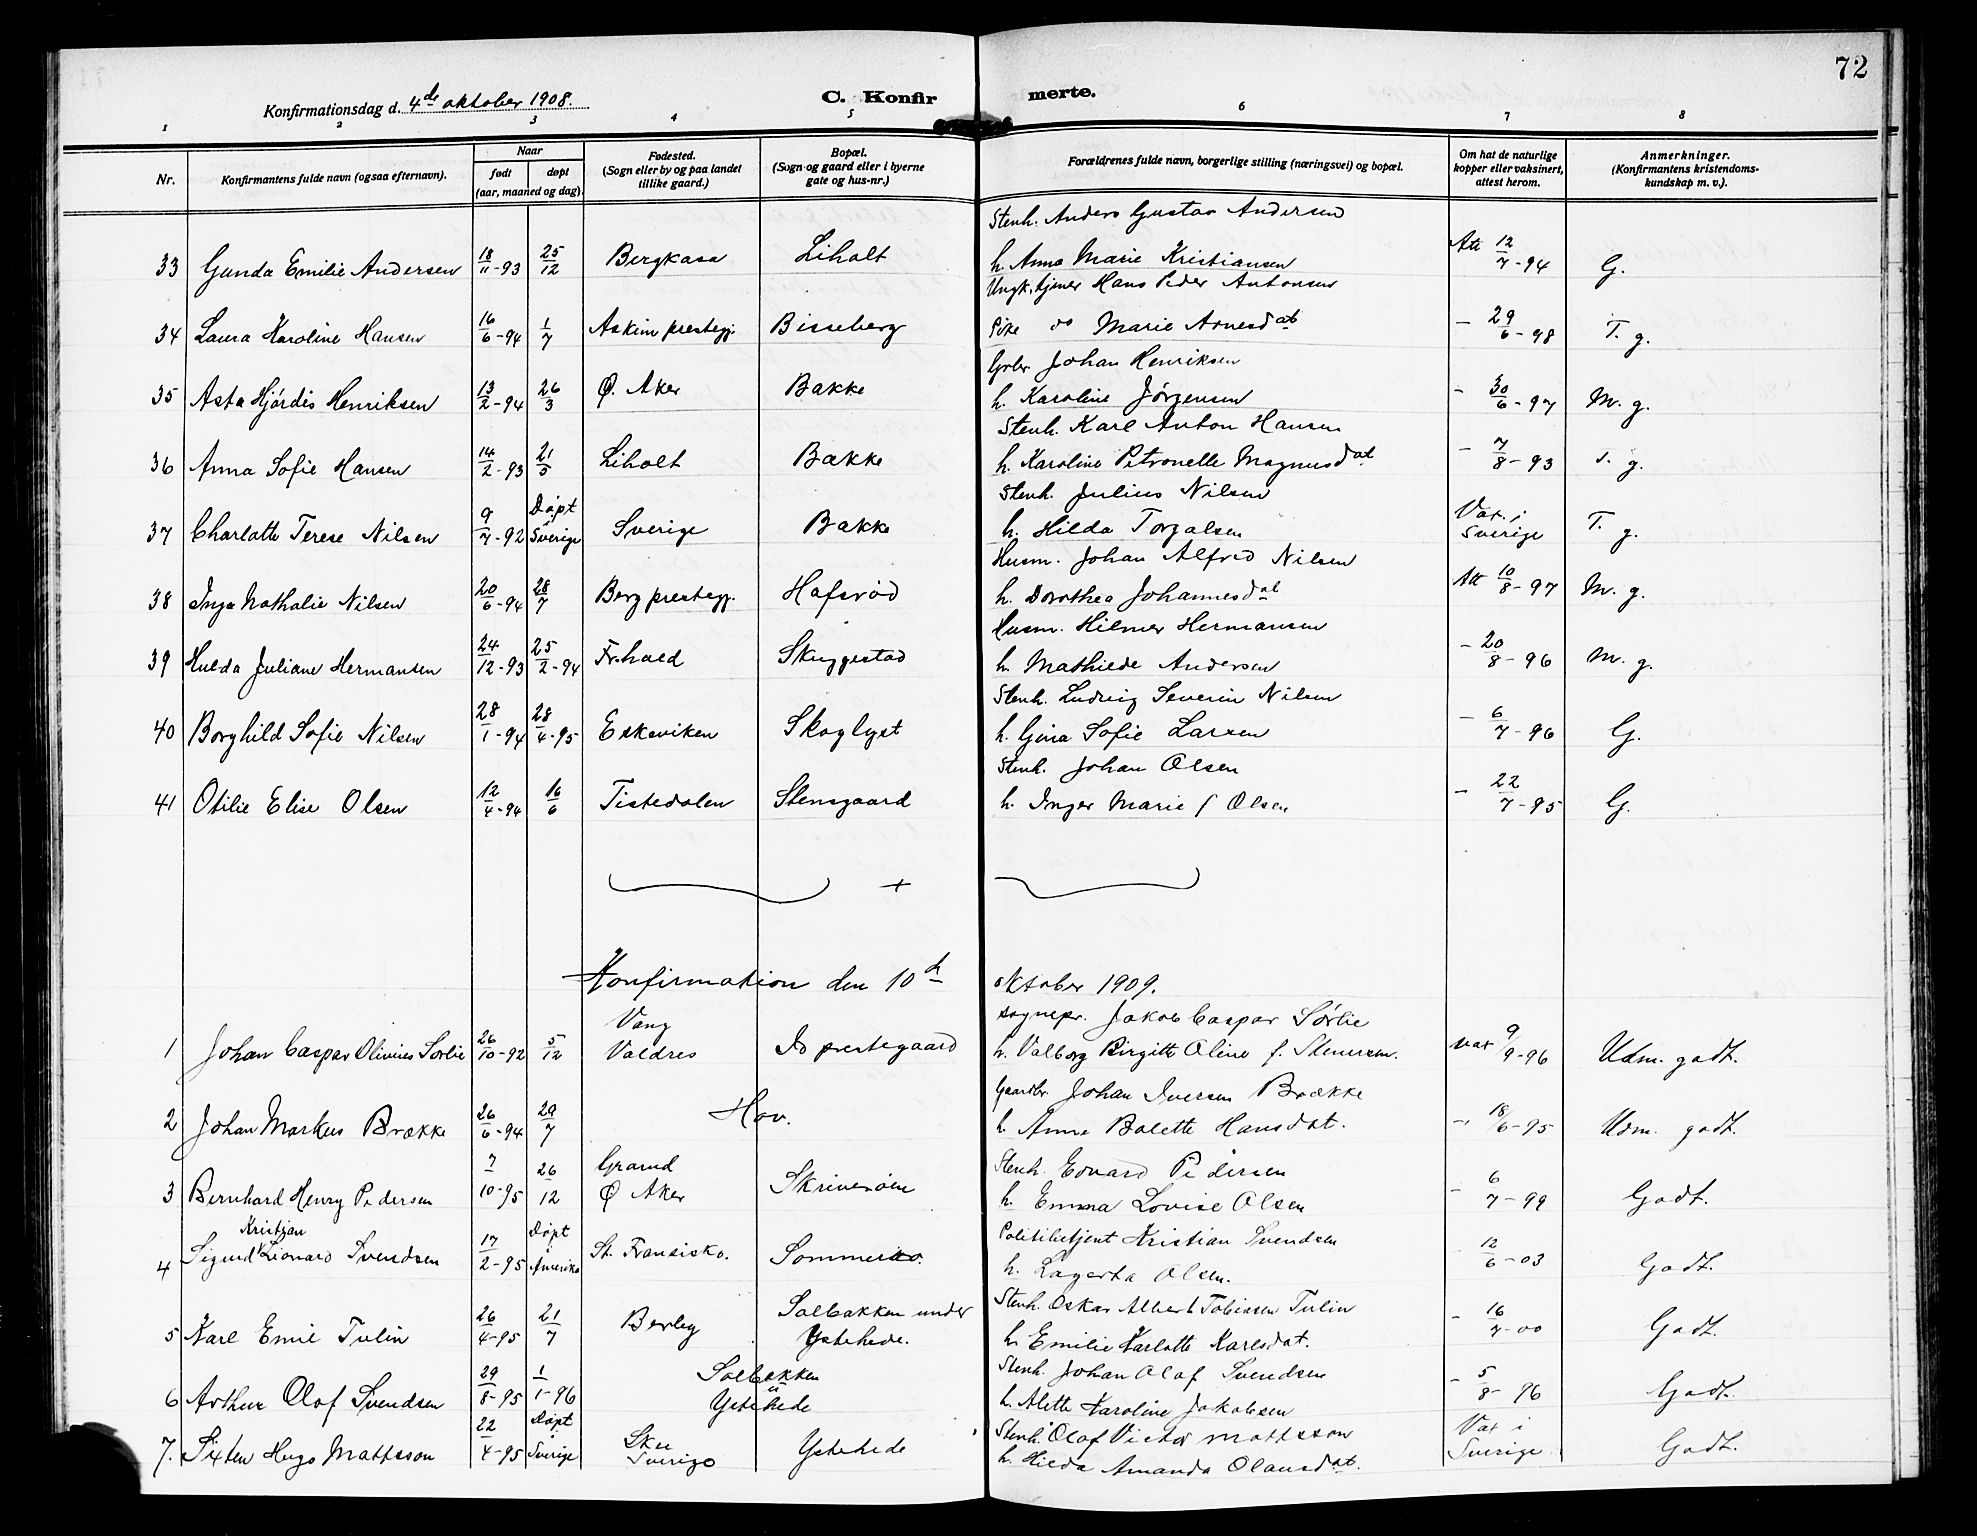 72
Konfirmationsdag d. 4de oktober 1908.
C. Konfirmerte.
1 2 3 4 5 6 7 8
Nr.
Konfirmantens fulde navn (ogsaa efternavn).
Naar
født døpt
(aar, maaned og dag).
Fødested.
(Sogn eller by og paa landet
tillike gaard.)
Bopæl.
(Sogn og gaard eller i byerne
gate og hus-nr.)
Forældrenes fulde navn, borgerlige stilling (næringsvei) og bopæl.
Om hat de naturlige
kopper eller vaksinert,
attest herom.
Anmerkninger.
(Konfirmantens kristendoms-
kundskap m. v.).
Stenh. Anders Gustav Andersen
33 Gunda Emilie Andersen 18/11-93 25/12 Bergkasa Liholt h. Anna Marie Kristiansen Att 12/7-94 G.
Ungk. tjener Hans Peder Antonsen
34 Laura Karoline Hansen 16/6-94 1/7 Askim prestegj. Bisseberg Pike do Marie Arnesdat - 29/6-98 T. g.
Grbr Johan Henriksen
35 Asta Hjórdis Henriksen 13/2-94 26/3 Ø. Aker Bakke h. Karoline Jørgensen - 30/6-97 M. g.
Stenh. Karl Anton Hansen
36 Anna Sofie Hansen 14/2-93 21/5 Liholt Bakke h. Karoline Petronelle Magnusdat - 7/8-93 T. g.
Stenh. Julius Nilsen
37 Charlotte Terese Nilsen 9/7-92 Døpt Sverige Sverige Bakke h. Hilda Torgalsen Vax. i Sverige T. g.
Husm. Johan Alfred Nilsen
38 Inga Nathalie Nilsen 20/6-94 28/7 Berg prestegj. Hafsrød h. Dorothea Johannesdat Att 10/8-97 M. g.
Husm. Hilmer Hermansen
39 Hulda Juliane Hermansen 24/12-93 25/2-94 Fr.hald Skuggestad h. Mathilde Andersen - 20/8-96 M. g.
Stenh. Ludvig Severin Nilsen
40 Borghild Sofie Nilsen 28/1-94 28/4-95 Eskeviken Skoglyst h. Gina Sofie Larsen - 6/7-96 G.
Stenh. Johan Olsen
41 Otilie Elise Olsen 12/4-94 16/6 Tistedalen Stensgaard h. Inger Marie f Olsen - 22/7-95 G.
+
Konfirmation den 10de oktober 1909.
Vang sognepr. Jakob Caspar Sórlie
1 Johan Caspar Olivius Sorlie 26/10-92 5/12 Valdres Id prestegaard h. Valborg Birgitte Oline f. Stenersen. vax 9/9-96 Udm. godt.
Gaardbr. Johan Iversen Brække
2 Johan Markus Brække 26/6-94 29/7 Hov. h. Anna Bolette Hansdat. - 18/6-95 Udm. godt.
Grorud Stenh. Edvard Pedersen
3 Bernhard Henry Pedersen 7/10-95 26/12 Ø Aker Skriverøen h. Emma Lovise Olsen - 6/7-99 Godt.
Kristjan Døpt Politibetjent Kristian Svendsen
4 Sigurd Leonard Svendsen 17/2-95 i Amerika St. Fransisko. Sommerro. h. Lagerta Olsen. - 12/6-03 Godt.
Solbakken under Stenh. Oskar Albert Tobiassen Tulin
5 Karl Emil Tulin 26/4-95 21/7 Berby Ystehede. h. Emilie Karlotte Karlsdat. - 16/7-00 Godt.
Solbakken Stenh. Johan Olaf Svendsen
6 Arthur Olaf Svendsen 29/8-95 1/1-96 u Ystehede h. Alette Karoline Jakobsen - 5/8-96 Godt.
Døpt Stenh. Olof Victor Mattsson Vax i
7. Sixten Hugo Mattsson 22/4-95 i Sverige Skee Sverige Ystehede h. Hilda Amanda Olausdat. Sverige Godt.